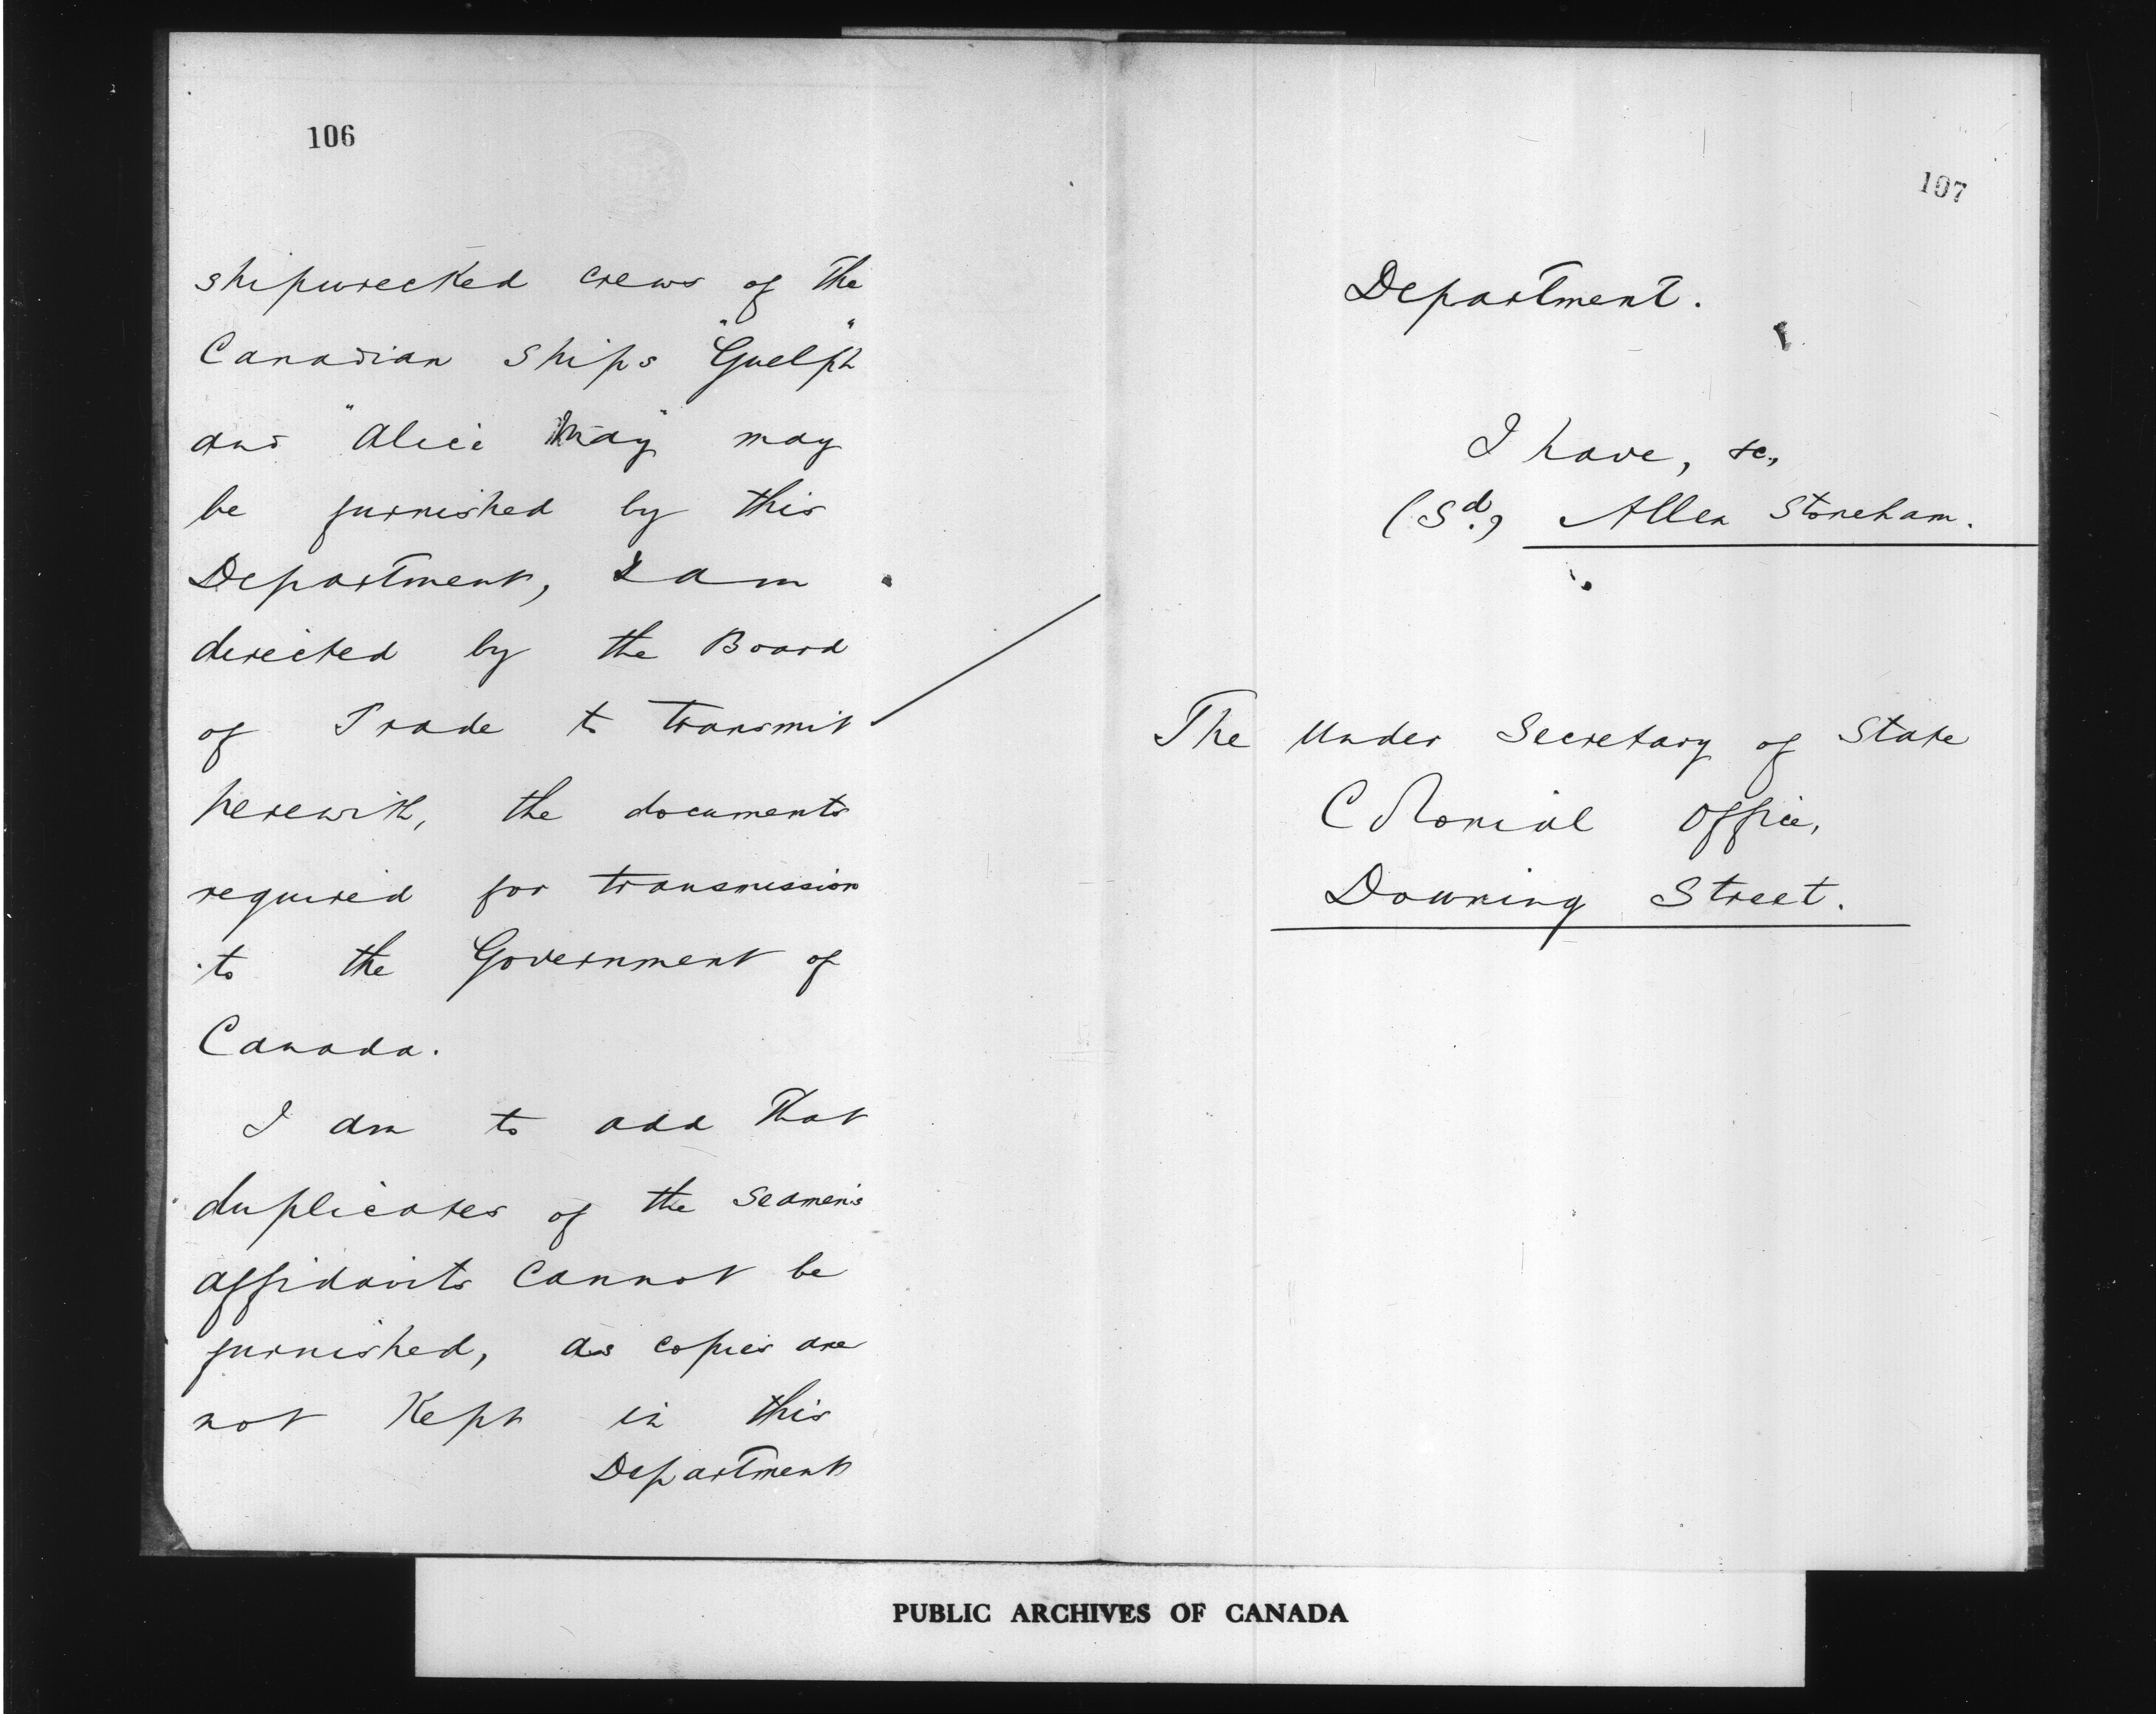 106
shipwrecked crews of the
Canadian Ships "Guelph"
and "Alice May" may
be furnished by this
Department, I am
directed by the Board
of Trade to transmit
herewith, the documents
required for transmission
to the Government of
Canada.
I am to add that
duplicates of the Seamen's
affidavits cannot be
furnished, as copies are
not Kept in this
Department
107
Department.
I have, &c.,
(Sd.) Allen Stoneham.
The Under Secretary of State
Colonial Office,
Downing Street.
PUBLIC ARCHIVES OF CANADA